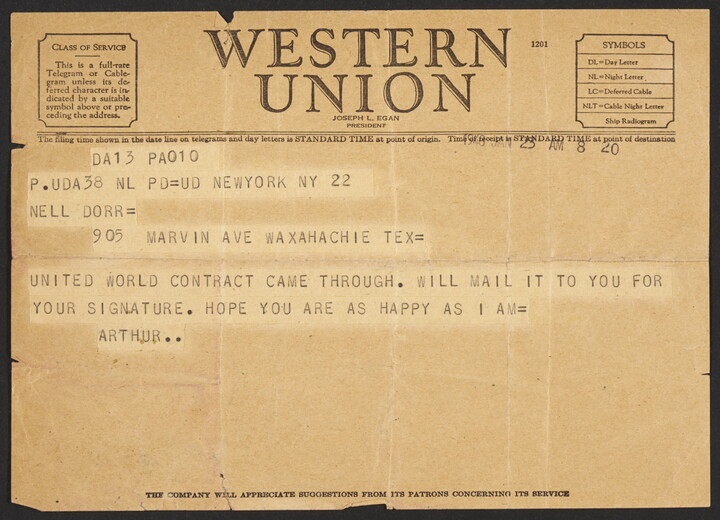 CLASS OF SERVICE
This is a full-rate
Telegram or Cable-
gram unless its de-
ferred character is in-
dicated by a suitable
symbol above or pre-
ceding the address.
WESTERN
UNION
JOSEPH L. EGAN
PRESIDENT
1201
SYMBOLS
DL=Day Letter
NL=Night Letter
LC=Deferred Cable
NLT=Cable Night Letter
Ship Radiogram
The filing time shown in the date line on telegrams and day letters is STANDARD TIME at point of origin. Time of receipt is STANDARD TIME at point of destination
JAN 23 AM 8 20
DA13 PA010
P.UDA38 NL PD=UD NEWYORK NY 22
NELL DORR=
905 MARVIN AVE WAXAHACHIE TEX=
UNITED WORLD CONTRACT CAME THROUGH. WILL MAIL IT TO YOU FOR
YOUR SIGNATURE. HOPE YOU ARE AS HAPPY AS I AM=
ARTHUR..
THE COMPANY WILL APPRECIATE SUGGESTIONS FROM ITS PATRONS CONCERNING ITS SERVICE